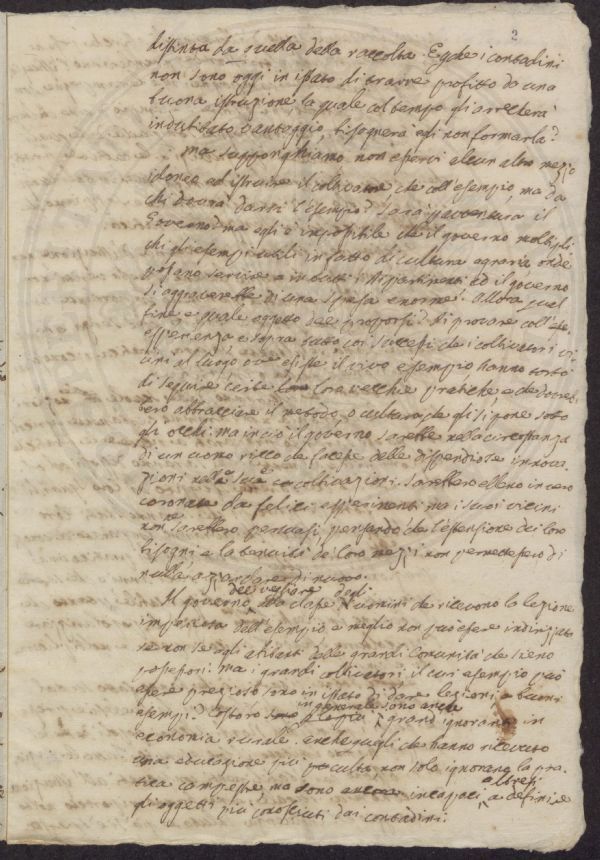 2
distinta da quella della raccolta. E che i contadini
non sono oggi in istato di trarre profitto da una
buona istruzione la quale col tempo gli arrecherà
indubitato vantaggio, bisognerà edi non formarla?
Ma supponghiamo non esservi alcun altro mezzo
idoneo ad istruire il coltivatore che coll'esempio, ma da
chi dovrà darsi l'esempio? Sarà per avventura il
Governo? ma egli è impossibile che il governo moltipli
chi gli esempi utili in fatto di cultura agraria onde
possano servire a in tutti i dipartimenti ed il governo
si aggraverebbe di una spesa enorme. Allora qual
fine e quale oggetto dee proporsi? Di provare coll'
esperienza e sopra tutto coi successi che i coltivatori vi
cini al luogo ove esiste il vivo esempio hanno torto
di seguire certe loro vecchie pratiche e che dovreb
bero abbracciare il metodo, o cultura che gli si pone sotto
gli occhi: ma in ciò il governo sarebbe nella circostanza
di un uomo ricco che facesse delle dispendiose innova
zioni nelle sue coltivazioni. Sarebbero elleno in vero
coronate da felici esperimenti ma i suoi vicini
non ne sarebbero persuasi pensando che l'estensione dei loro
bisogni e la tenuità de' loro mezzi non permettessero di
nulla azzardare di nuovo.
dee vegliare degli
Il governo alla classe uomini che ricevono la lezione
imperiosa dell'esempio e meglio non può essere indirizzata
se non se agli abitanti delle grandi Comunità che sieno
possessori: ma i grandi coltivatori il cui esempio può
essere prezioso sono in istato di dare lezioni e buoni
in generale sono anch
esempi? Costoro sono grandi ignoranti in
economia rurale. anche quegli che hanno ricevuto
una educazione più culta non solo ignorano la pra
altresì
tica campestre, ma sono ancora incapaci a definire
gli oggetti più conosciuti dai contadini.